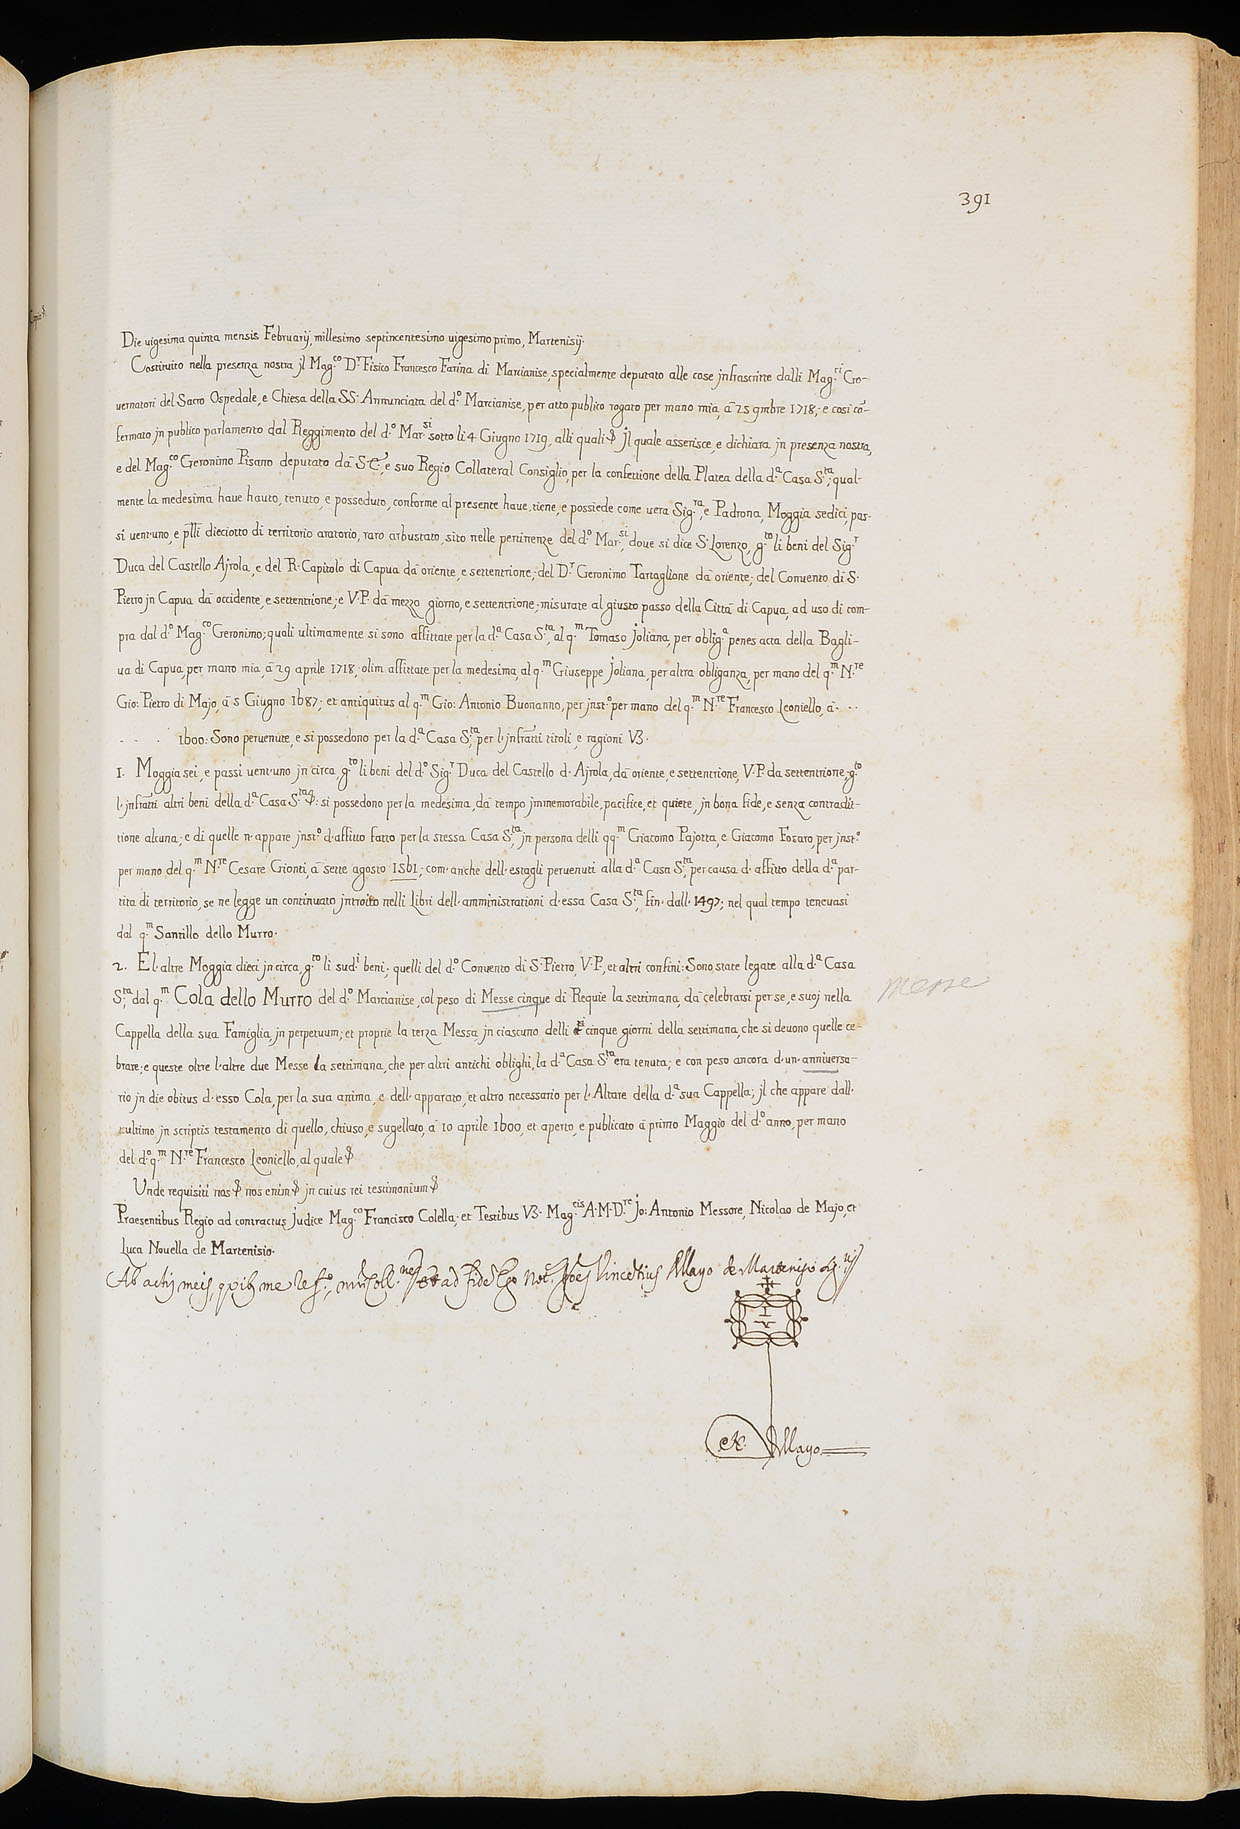 391
Die vigesima quinta mensis Februarij, millesimo septincentesimo vigesimo primo, Martenisij.
Costituito nella presenza nostra jl Mag.co D.r Fisico Francesco Farina di Marcianise, specialmente deputato alle cose jnfrascritte dalli Mag.ci Go-
vernatori del Sacro Ospedale, e Chiesa della SS. Annunciata del d.o Marcianise, per atto publico rogato per mano mia, à 25 9mbre 1718; e così co-
fermato jn publico parlamento dal Reggimento del d.o Mar.si sotto li 4 Giugno 1719, alli quali jl quale asserisce, e dichiara jn presenza nostra,
e del Mag.co Geronimo Pisano deputato dà S.E., e suo Regio Collateral Consiglio, per la confettione della Platea della d.a Casa S.ta, qual-
mente la medesima have hauto, tenuto, e posseduto, conforme al presente have, tiene, e possiede come vera Sig.ra, e Padrona, Moggia sedici, pas-
si vent'uno, e p̄lli dieciotto di territorio aratorio, raro arbustato, sito nelle pertinenze del d.o Mar.si, dove si dice S. Lorenzo, g.to li beni del Sig.r
Duca del Castello Ajrola, e del R. Capitolo di Capua dà oriente, e settentrione; del D.r Geronimo Tartaglione dà oriente; del Convento di S.
Pietro jn Capua dà occidente, e settentrione; e V.P. dà mezzo giorno, e settentrione; misurate al giusto passo della Città di Capua, ad uso di com-
pra dal d.o Mag.co Geronimo; quali ultimamente si sono affittate per la d.a Casa S.ta, al q.m Tomaso Joliana, per oblig.a penes acta della Bagli-
va di Capua, per mano mia, à 29 aprile 1718; olim affittate per la medesima, al q.m Giuseppe Joliana, per altra obliganza, per mano del q.m N.re
Gio: Pietro di Majo, à 5 Giugno 1687; et antiquitus al q.m Gio: Antonio Buonanno, per jnst.o per mano del q.m N.re Francesco Leoniello, à . . .
. . . 1600: Sono pervenute, e si possedono per la d.a Casa S.ta, per l'jnfratti titoli, e ragioni V3.
1. Moggia sei, e passi vent'uno jn circa, g.to li beni del d.o Sig.r Duca del Castello d'Ajrola, dà oriente, e settentrione, V.P. da settentrione, g.to
l'jnfratti altri beni della d.a Casa S.ta: si possedono per la medesima, dà tempo jmmemorabile, pacifice, et quiete, jn bona fide, e senza contradit-
tione alcuna; e di quelle n'appare jnst.o d'affitto fatto per la stessa Casa S.ta, jn persona delli qq.m Giacomo Pajotta, e Giacomo Fosaro, per jnst.o
per mano del q.m N.re Cesare Gionti, à sette agosto 1561; com'anche dell'estagli pervenuti alla d.a Casa S.ta, per causa d'affitto della d.a par-
tita di territorio, se ne legge un continuato jntroito nelli Libri dell'amministrationi d'essa Casa S.ta, fin dall'1497; nel qual tempo tenevasi
dal q.m Santillo dello Murro.
2. E l'altre Moggia dieci jn circa, g.to li sud.i beni; quelli del d.o Convento di S. Pietro, V.P., et altri confini: Sono state legate alla d.a Casa
S.ta dal q.m Cola dello Murro del d.o Marcianise, col peso di Messe cinque di Requie la settimana, dà celebrarsi per se, e suoj nella
messe
Cappella della sua Famiglia, jn perpetuum; et proprie la terza Messa, jn ciascuno delli cinque giorni della settimana, che si devono quelle ce-
brare; e queste oltre l'altre due Messe la settimana, che per altri antichi oblighi, la d.a Casa S.ta era tenuta; e con peso ancora d'un'anniversa-
rio jn die obitus d'esso Cola, per la sua anima, e dell'apparato, et altro necessario per l'Altare della d.a sua Cappella; jl che appare dall'
ultimo jn scriptis testamento di quello, chiuso, e sugellato, à 10 aprile 1600, et aperto, e publicato à primo Maggio del d.o anno, per mano
del d.o q.m N.re Francesco Leoniello, al quale
Unde requisiti nos nos enim jn cuius rei testimonium
Praesentibus Regio ad contractus Judice Mag.co Francisco Colella; et Testibus V3. Mag.cis A.M.D.re Jo: Antonio Messore, Nicolao de Majo, et
Luca Novella de Martenisio.
Ab actis meis, quib. me ad fidē Ego Not. Joēs Vincētius Mayo de Martenisio
Mayo